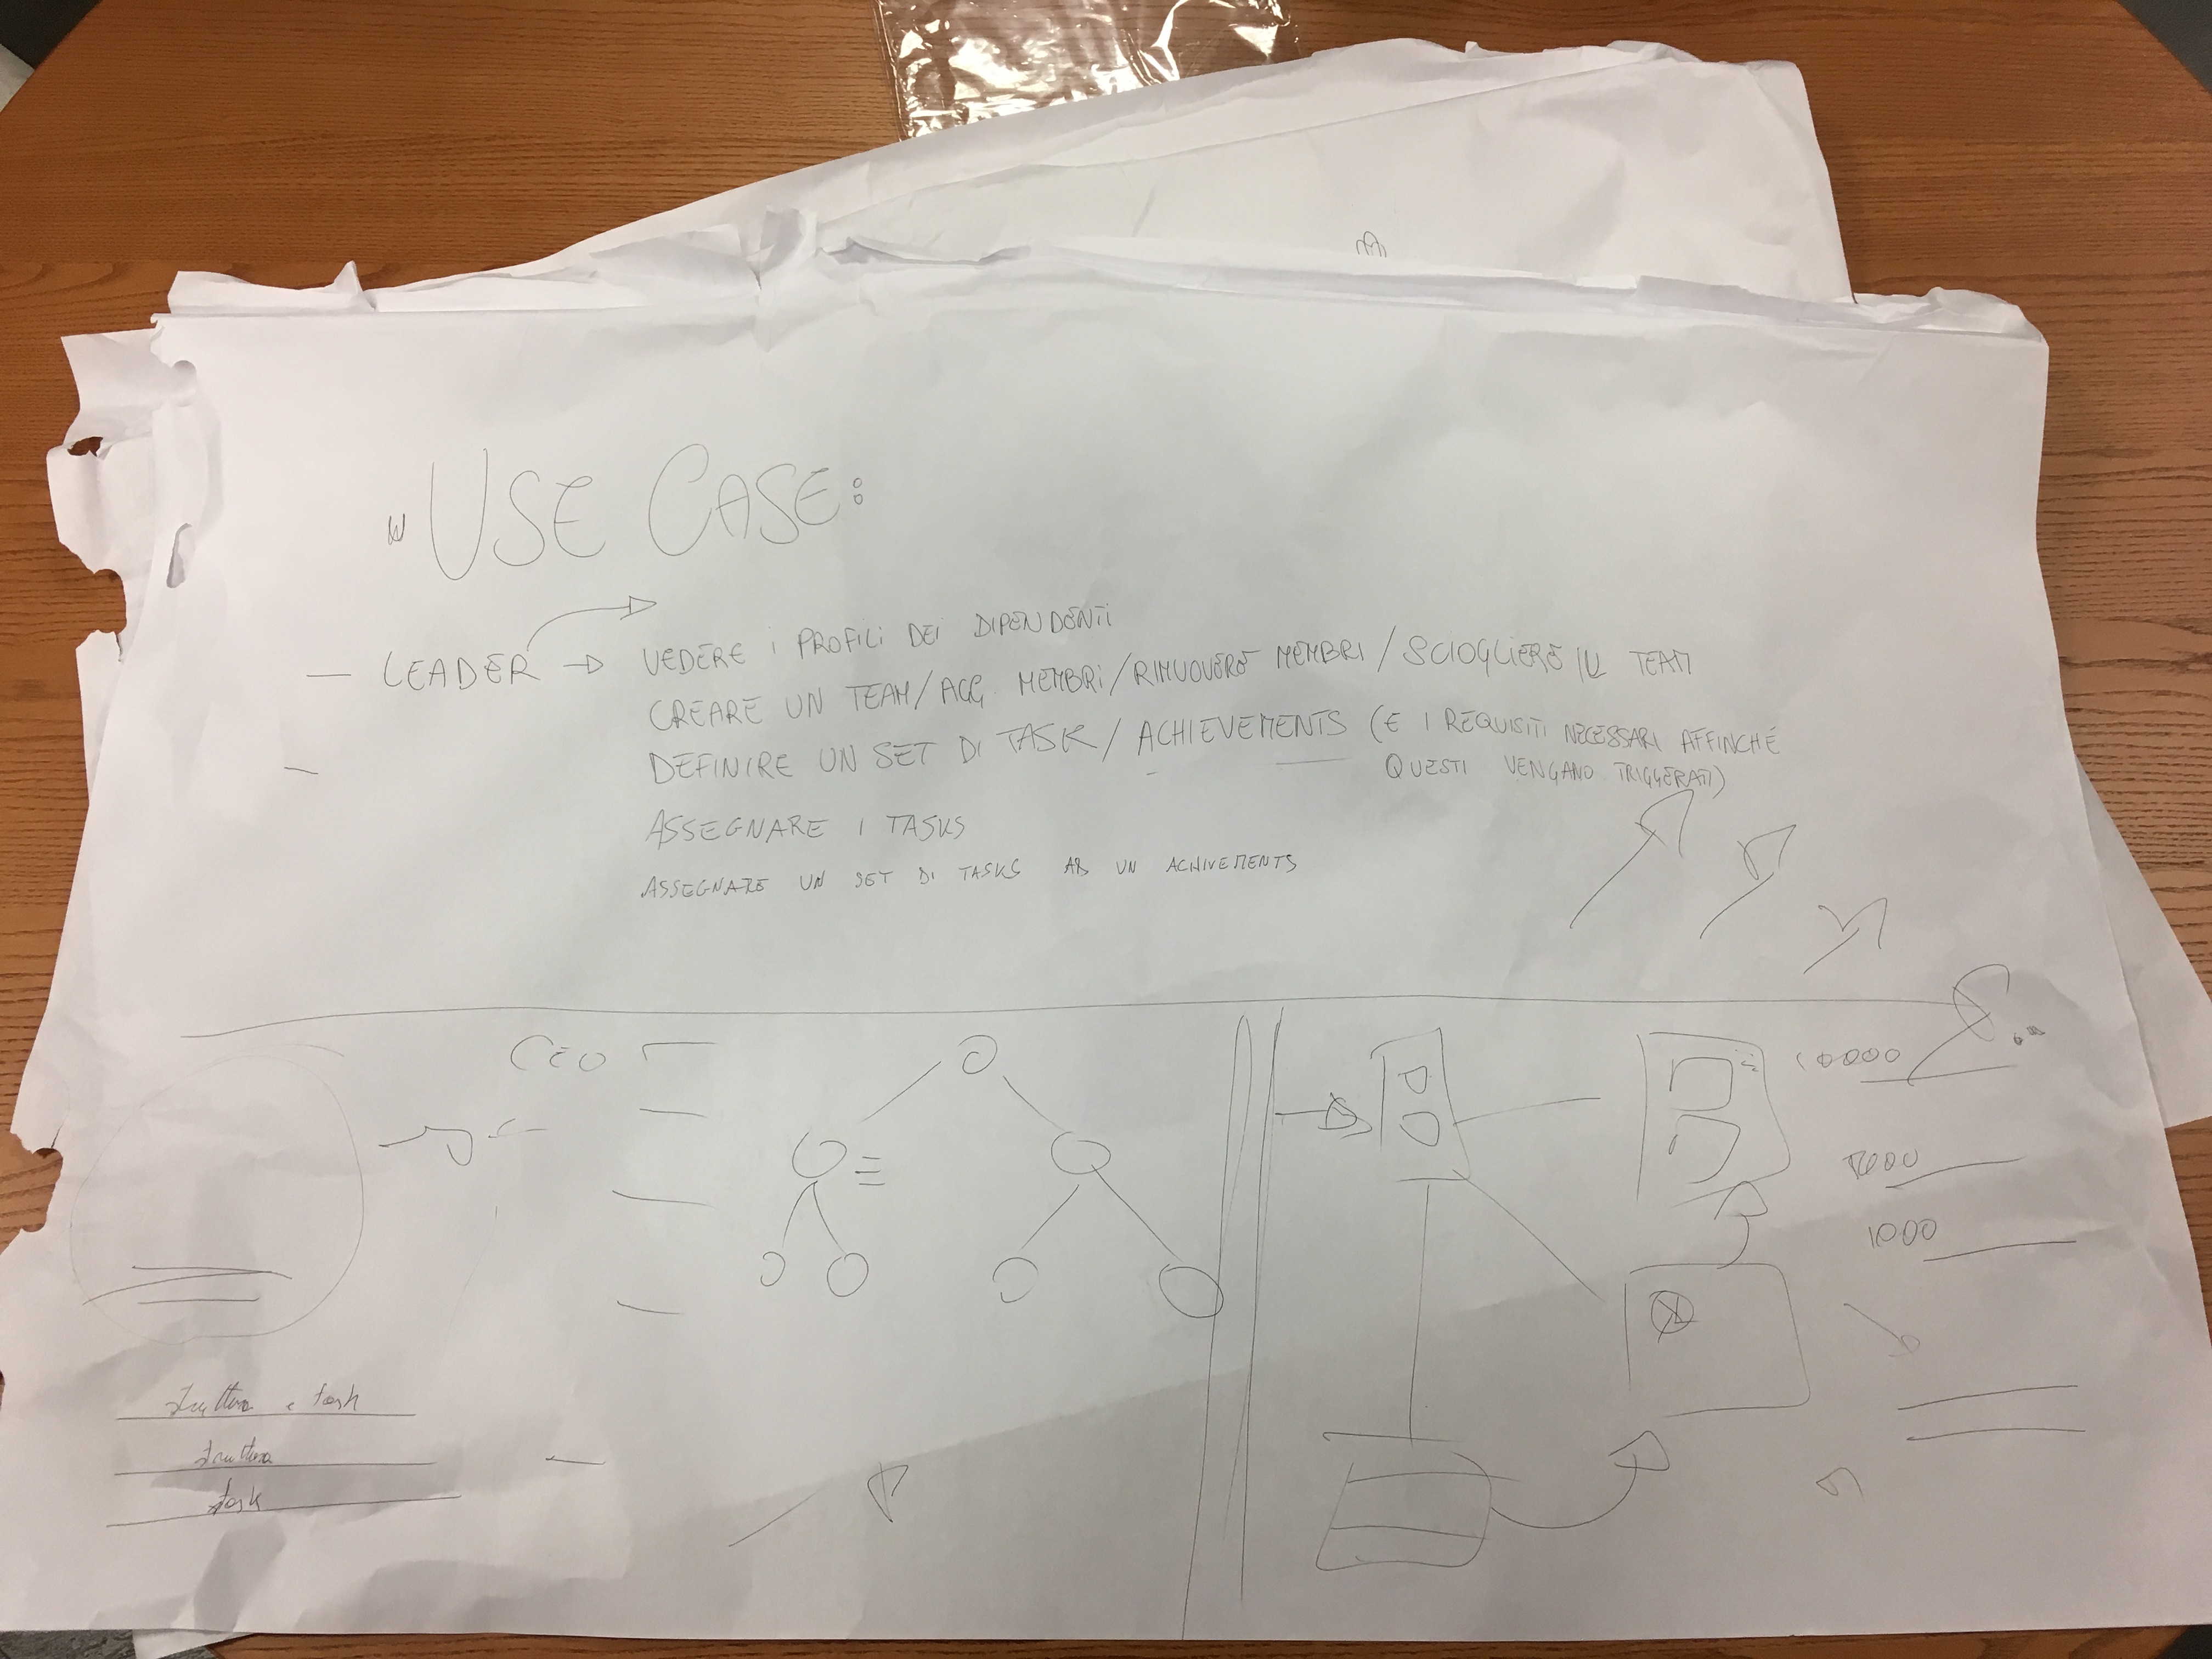 USE CASE:
— LEADER → VEDERE I PROFILI DEI DIPENDENTI
CREARE UN TEAM/AGG. MEMBRI/RIMUOVERE MEMBRI/SCIOGLIERE IL TEAM
DEFINIRE UN SET DI TASK/ACHIEVEMENTS (E I REQUISITI NECESSARI AFFINCHÉ
QUESTI VENGANO TRIGGERATI)
ASSEGNARE I TASKS
ASSEGNARE UN SET DI TASKS AD UN ACHIVEMENTS
CEO
10000
1000
task
task